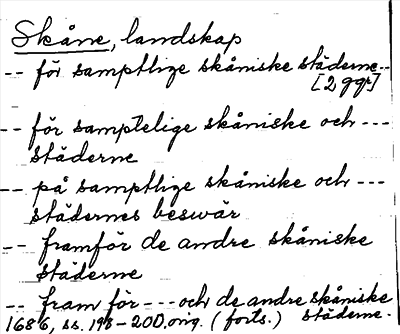 Skåne, landskap
-- för samptlige skåniske städerne--
[2 ggr]
-- för samptelige skåniske och ---
städerne
-- på samptlige skåniske och ---
städernes beswär
-- framför de andre skåniske
städerne
-- fram för --- och de andre skåniske
1686, ss. 198-200. orig. (forts.) städerne.